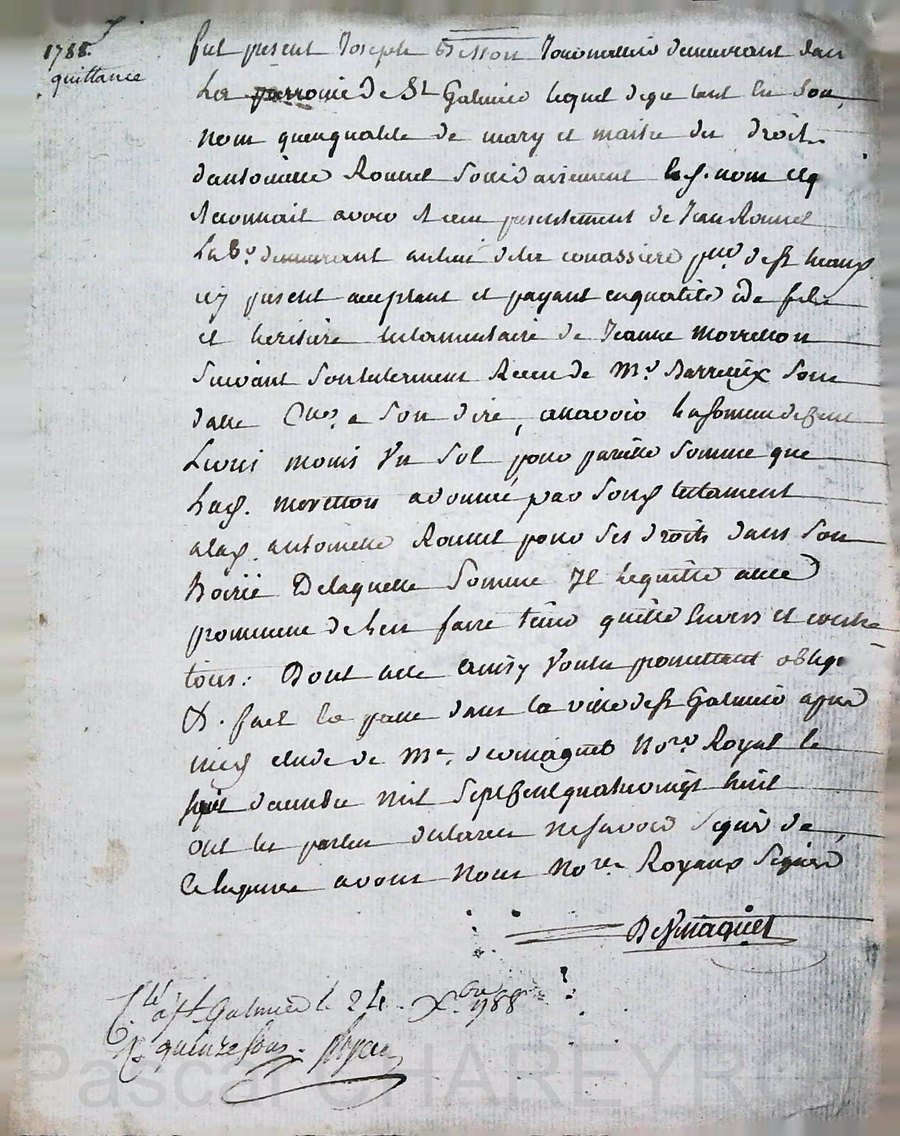 1788
quittance
fut present Joseph Besson Journallié demeurant dans
La parroice de St Galmier lequel de gre tant En Son
Nom qu'enqualité de mary et maitre des droits
dantoinette Rounel Sollidairement lesd. nom
Reconnait avoir Recu presentement de Jean Rounel
Lab.r demeurant au lieu de la conassiere p.sse de St heand
icy present acceptant et payant enqualité de fils
et heritiere testamentaire de Jeanne Morrellon
Suivant Son testament Recu de M.e Barreiix Sous
datte Ches a Son dire, assavoir la somme de Cent
Livres moins Un Sol pour pareille Somme que
Lad. Morellon adonné par Sond testament
alad. antoinette Rounel pour Ses droits dans Son
hoirie De laquelle Somme Il le quitte avec
promesse de Len faire tenir quitte Envers et contre
tous: Dont acte Ainsy Voulu promettant oblige
&. fait Et passé dans la ville de St Galmier apres
midy etude de M.e desmaquet No.re Royal le
huit decembre Mil Sept Cent quatrevingt huit
ont les parties declarees ne savoir Signer de
ce enquis avons Nous No.re Royaux Signé
Desmaquet
C.lé à St Galmier le 24 Xbre 1788
R. quinze sous.
Pascal CHAREYRON